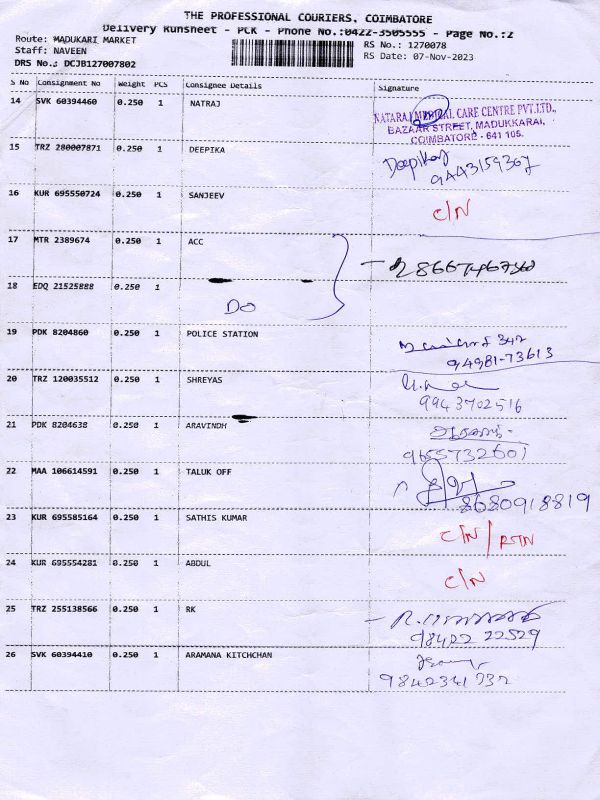 THE PROFESSIONAL COURIERS, COIMBATORE
Delivery Runsheet - PCK - Phone No.:0422-3505555 - Page No.:2
Route: MADUKARI MARKET
Staff: NAVEEN
DRS No.: DCJB127007802
RS No.: 1270078
RS Date: 07-Nov-2023
S No Consignment No Weight PCS Consignee Details Signature
14 SVK 60394460 0.250 1 NATRAJ
NATARAJ MEDICAL CARE CENTRE PVT.LTD.,
BAZAAR STREET, MADUKKARAI,
COIMBATORE - 641 105.
15 TRZ 280007871 0.250 1 DEEPIKA
Deepika
9443159367
16 KUR 695550724 0.250 1 SANJEEV C/N
17 MTR 2389674 0.250 1 ACC
18 EDQ 21525888 0.250 1
DO
19 PDK 8204860 0.250 1 POLICE STATION
342
94981-73613
20 TRZ 120035512 0.250 1 SHREYAS
9943702516
21 PDK 8204638 0.250 1 ARAVINDH
9655732601
22 MAA 106614591 0.250 1 TALUK OFF
8680918819
23 KUR 695585164 0.250 1 SATHIS KUMAR C/N/RTN
24 KUR 695554281 0.250 1 ABDUL C/N
25 TRZ 255138566 0.250 1 RK
98422 22529
26 SVK 60394410 0.250 1 ARAMANA KITCHCHAN